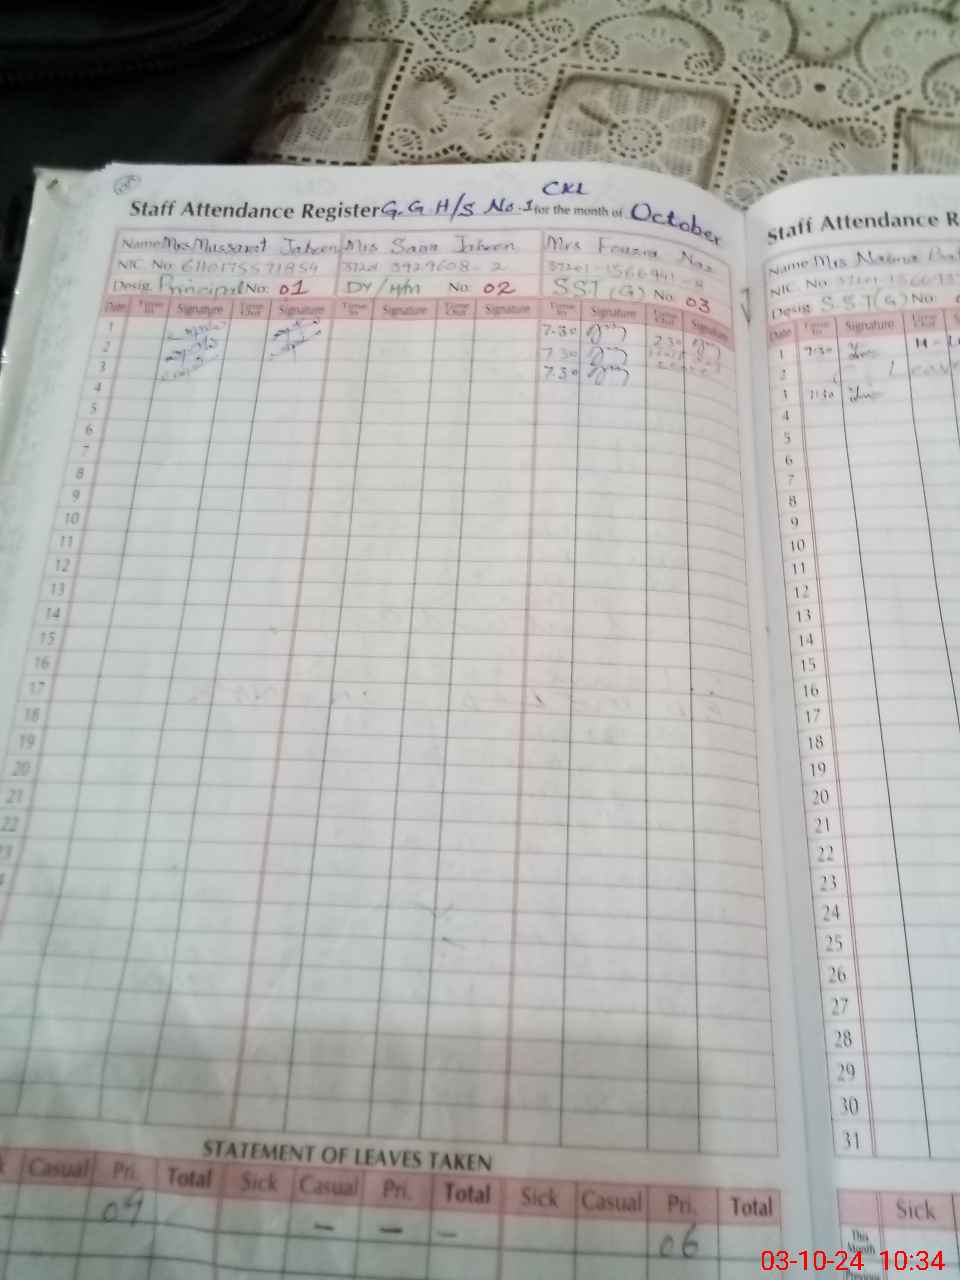 CKL
Staff Attendance Register G.G.H/S No.1 for the month of October
Name Mrs Mussarat Jabeen Mrs Saba Jabeen Mrs Fouzia Naz
NIC. No. 37201 3929608-2 37201-1566941-4
Desig. Principal No: 01 DY/HM No: 02 SST (G) No: 03
Date Time In Signature Time Out Signature Time In Signature Time Out Signature Time In Signature Time Out Signature
1 7.30
2 7.30
3 7.30
4
5
6
7
8
9
10
11
12
13
14
15
16
17
18
19
20
21
22
STATEMENT OF LEAVES TAKEN
Casual Pri. Total Sick Casual Pri. Total Sick Casual Pri. Total
– – – 06
Staff Attendance R
Name Mrs
NIC. No.
Desig: SST (G) No:
Date Time In Signature Time Out
1 7:30
2 Leave
3 7:30
4
5
6
7
8
9
10
11
12
13
14
15
16
17
18
19
20
21
22
23
24
25
26
27
28
29
30
31
Sick
This Month
Previous
03-10-24 10:34